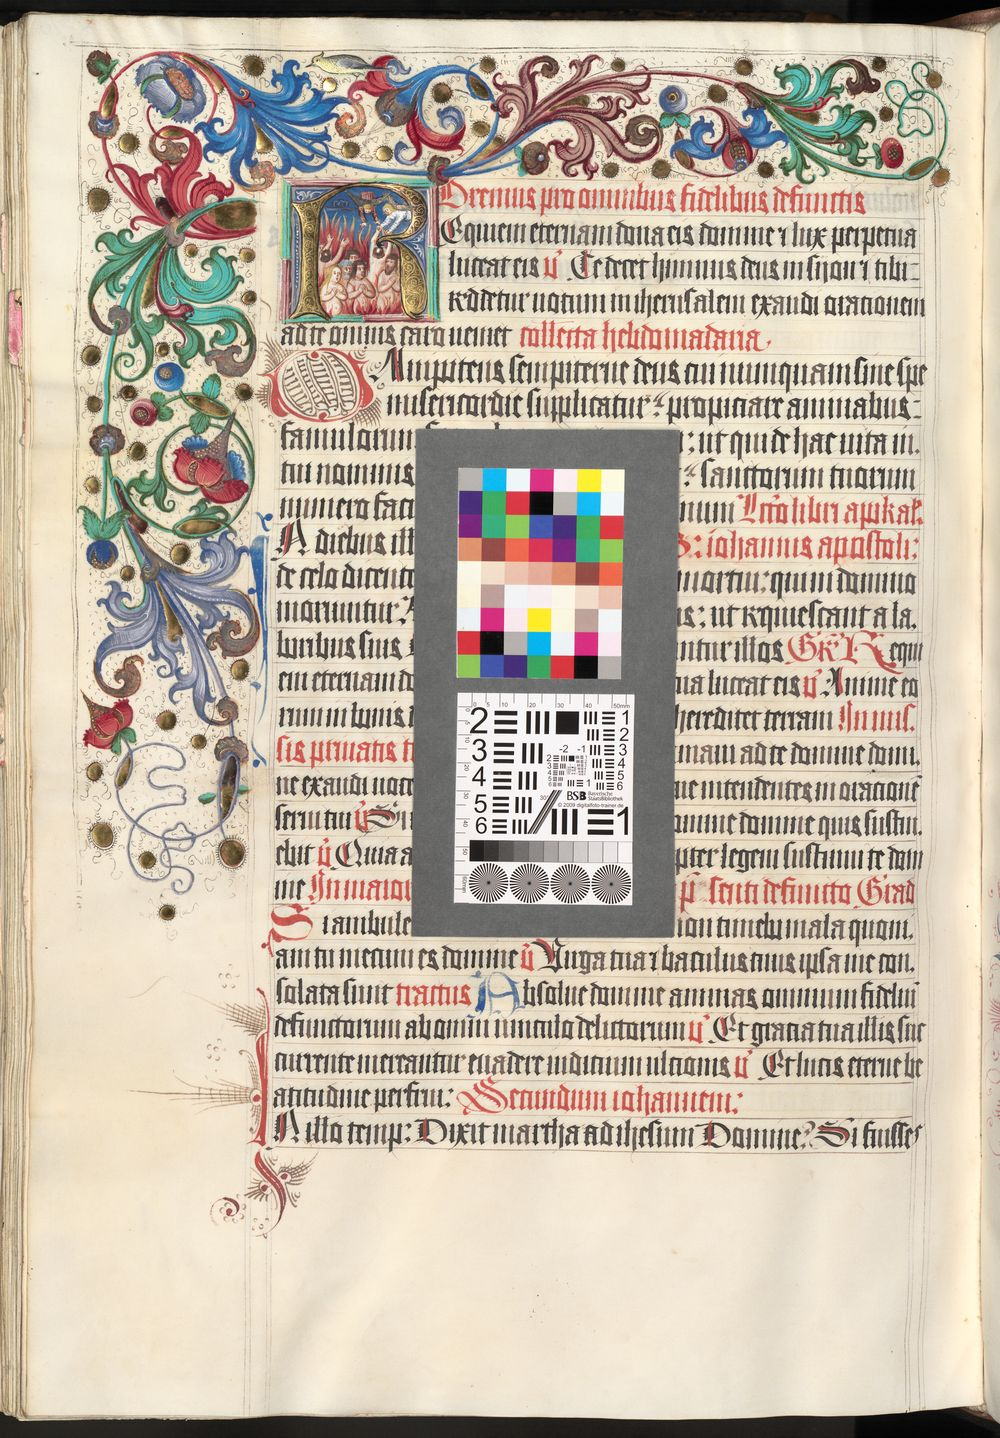 Oremus pro omnibus fidelibus defunctis
Requiem eternam dona eis domine ⁊ lux perpetua
luceat eis v̄ Te decet himnus deus in sijon ⁊ tibi
reddetur uotum in iherusalem exaudi orationem
ad te omnis caro ueniet collecta hebdomadaria.
Omnipotens sempiterne deus cui nunquam sine spe
misericordie supplicatur: propiciare animabus
famulorum ; ut qui de hac uita in.
tui nominis : sanctorum tuorum
numero faci num Lcō libri apokal.
In diebus ill S: iohannis apostoli:
de celo dicente mortui: qui in domino
moriuntur: s: ut requiescant a la.
boribus suis ntur illos Gr̄ Requi
em eternam do ua luceat eis v̄ Anime eo
rum in bonis hereditet terram In mis.
sis priuatis t mam ad te domine dom.
ne exaudi uoce ue intendentes in oratione
serui tui v̄ Si omine domine quis sustin.
ebit v̄ Quia a pter legem sustinui te dom
ine In maiori p̄ senti defuncto Grad
Si ambule non timebo mala quoni.
am tu mecum es domine v̄ Virga tua ⁊ baculus tuus ipsa me con.
solata sunt tractus Absolue domine animas omnium fideliū
defunctorum ab omni uinculo delictorum v̄ Et gracia tua illis suc
currente mereantur euadere iudicium ulcionis v̄ Et lucis eterne be
atitudine perfrui: Secundum iohannem:
In illo temp: Dixit martha ad ihesum Domine: Si fuisses
0 5 10 20 30 40 50mm
2 1
3 2
4 3
5 4
6 5
6
-2 -1
BSB Bayerische StaatsBibliothek
© 2009 digitalfoto-trainer.de
1